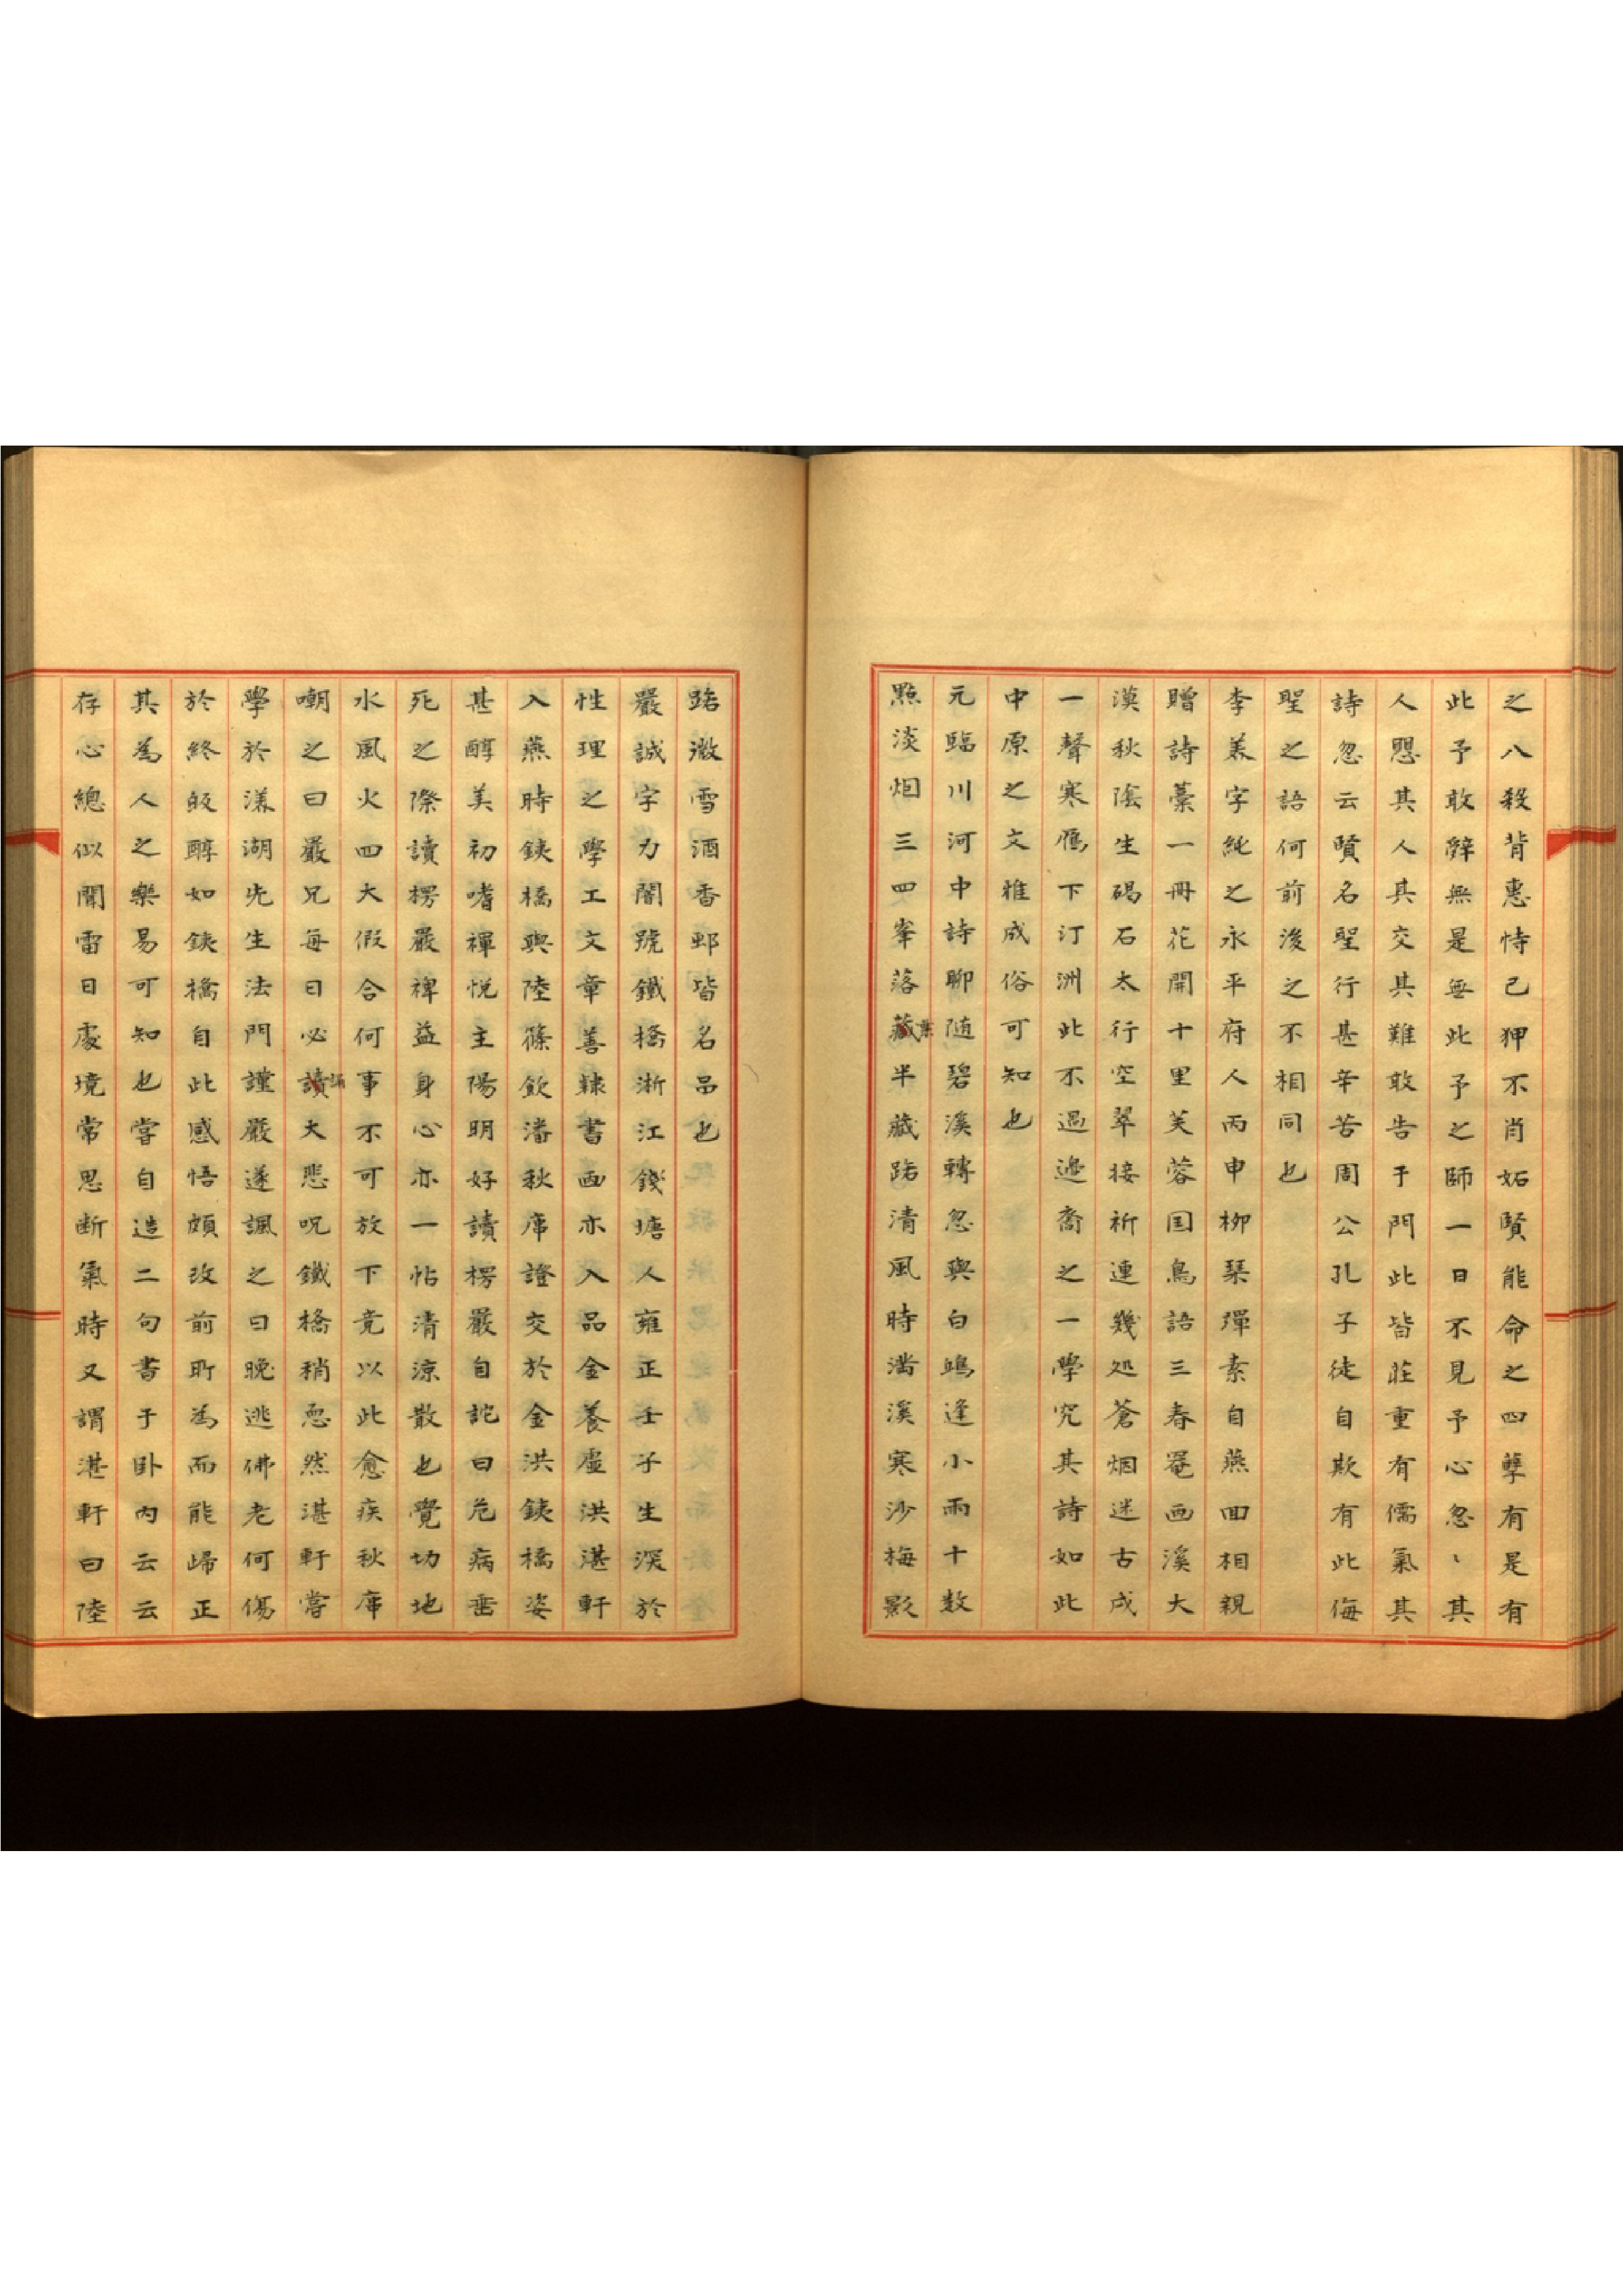 之八殺背惠恃己狎不肖妬賢能命之四孽有是有
此予敢辭無是無此予之師一日不見予心忽〻其
人愳其人其交其難敢告于門此皆莊重有儒氣其
詩忽云賢名聖行甚辛苦周公孔子徒自欺有此侮
聖之語何前後之不相同也
李美字純之永平府人丙申柳琴彈素自燕回相親
贈詩藁一冊花開十里芙蓉国鳥語三春罨画溪大
漠秋陰生碣石太行空翠接祈連幾処蒼烟迷古戍
一聲寒鴈下汀洲此不過邊裔之一學究其詩如此
中原之文雅成俗可知也
元臨川河中詩聊随碧溪轉忽與白鷗逢小雨十数
點淡烟三四峯落藏葉半藏路清風時満溪寒沙梅影
路㴲雪酒香郵皆名品也
嚴誠字力闇號鐵橋浙江錢塘人雍正壬子生深於
性理之學工文章善隸書画亦入品金養虛洪湛軒
入燕時鉄橋與陸篠飮潘秋庫證交於金洪鉄橋姿
甚醇美初嗜禪悅主陽明好讀楞嚴自詑曰危病垂
死之際讀楞嚴裨益身心亦一帖清涼散也覺切地
水風火四大假合何事不可放下竟以此愈疾秋庫
嘲之曰嚴兄每日必讀誦大悲呪鐵橋稍慍然湛軒嘗
學於渼湖先生法門謹嚴遂諷之曰晩逃佛老何傷
於終皈醇如鉄橋自此感悟頗改前所為而能歸正
其為人之樂易可知也嘗自造二句書于臥內云云
存心總似聞雷日處境常思断氣時又謂湛軒曰陸